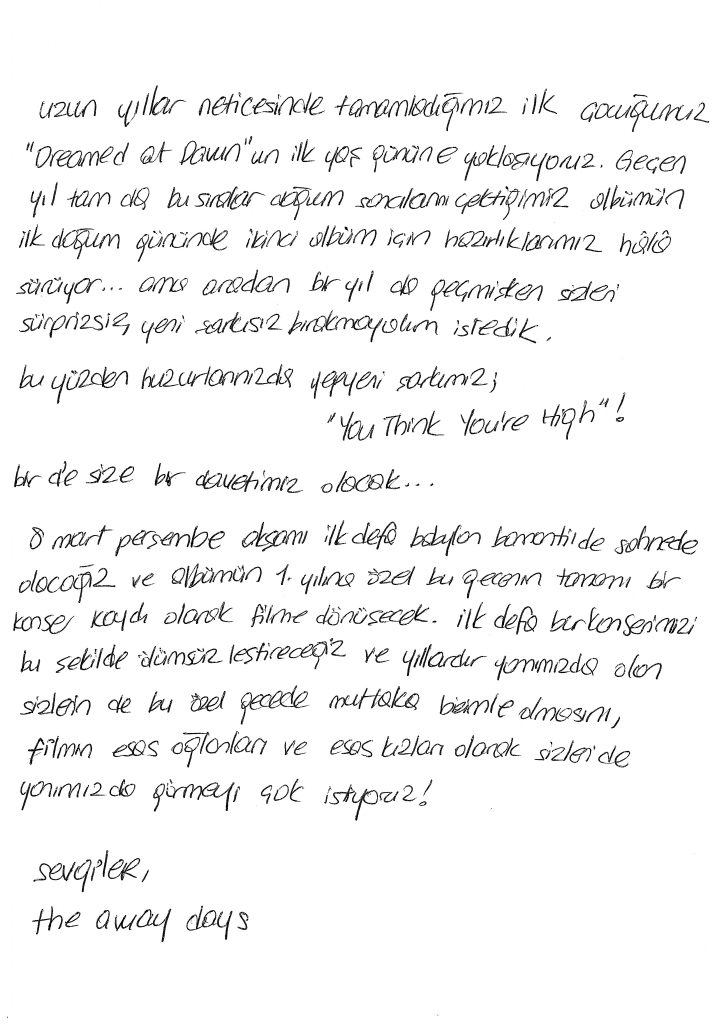 uzun yıllar neticesinde tamamladığımız ilk çocuğumuz
"Dreamed at Dawn"un ilk yaş gününe yaklaşıyoruz. Geçen
yıl tam da bu sıralar doğum sancılarını çektiğimiz albümün
ilk doğum gününde ikinci albüm için hazırlıklarımız hâlâ
sürüyor... ama aradan bir yıl da geçmişken sizleri
sürprizsiz, yeni şarkısız bırakmayalım istedik.
bu yüzden huzurlarınızda yepyeni şarkımız;
"You Think You're High"!
bir de size bir davetimiz olacak...
8 mart perşembe akşamı ilk defa babylon bomonti'de sahnede
olacağız ve albümün 1. yılına özel bu gecenin tamamı bir
konser kaydı olarak filme dönüşecek. ilk defa bir konserimizi
bu şekilde ölümsüzleştireceğiz ve yıllardır yanımızda olan
sizlerin de bu özel gecede mutlaka bizimle olmasını,
filmin esas oğlanları ve esas kızları olarak sizleri de
yanımızda görmeyi çok istiyoruz!
sevgiler,
the away days